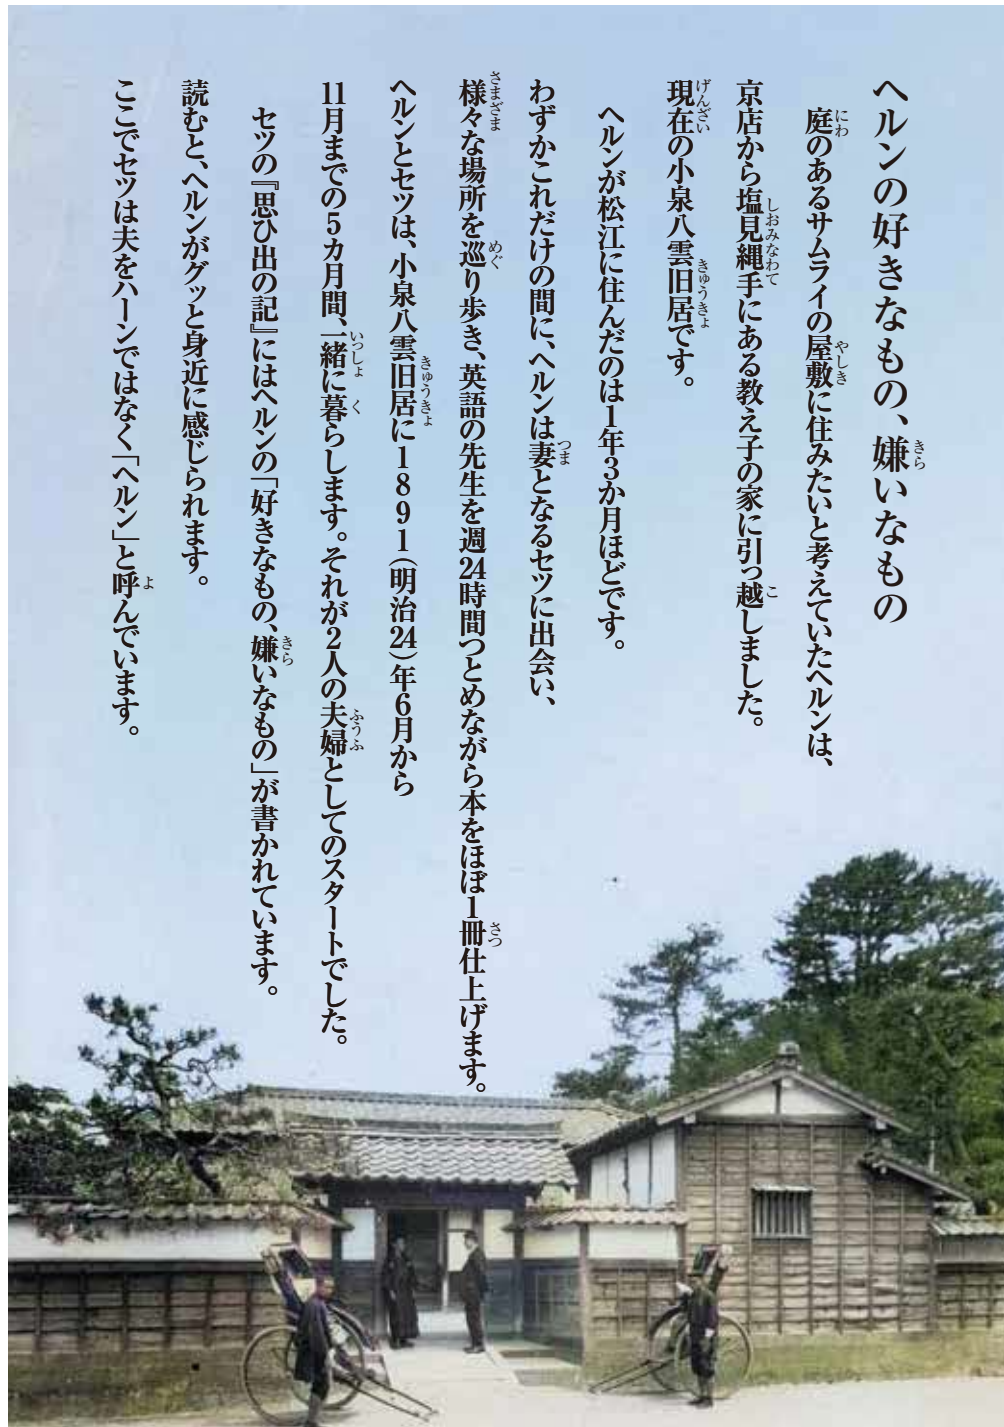 ヘルンの好きなもの、嫌いなもの
庭のあるサムライの屋敷に住みたいと考えていたヘルンは、
京店から塩見縄手にある教え子の家に引っ越しました。
現在の小泉八雲旧居です。
ヘルンが松江に住んだのは1年3か月ほどです。
わずかこれだけの間に、ヘルンは妻となるセツに出会い、
様々な場所を巡り歩き、英語の先生を週24時間つとめながら本をほぼ1冊仕上げます。
ヘルンとセツは、小泉八雲旧居に1891（明治24）年6月から
11月までの5カ月間、一緒に暮らします。それが2人の夫婦としてのスタートでした。
セツの『思ひ出の記』にはヘルンの「好きなもの、嫌いなもの」が書かれています。
読むと、ヘルンがグッと身近に感じられます。
ここでセツは夫をハーンではなく「ヘルン」と呼んでいます。